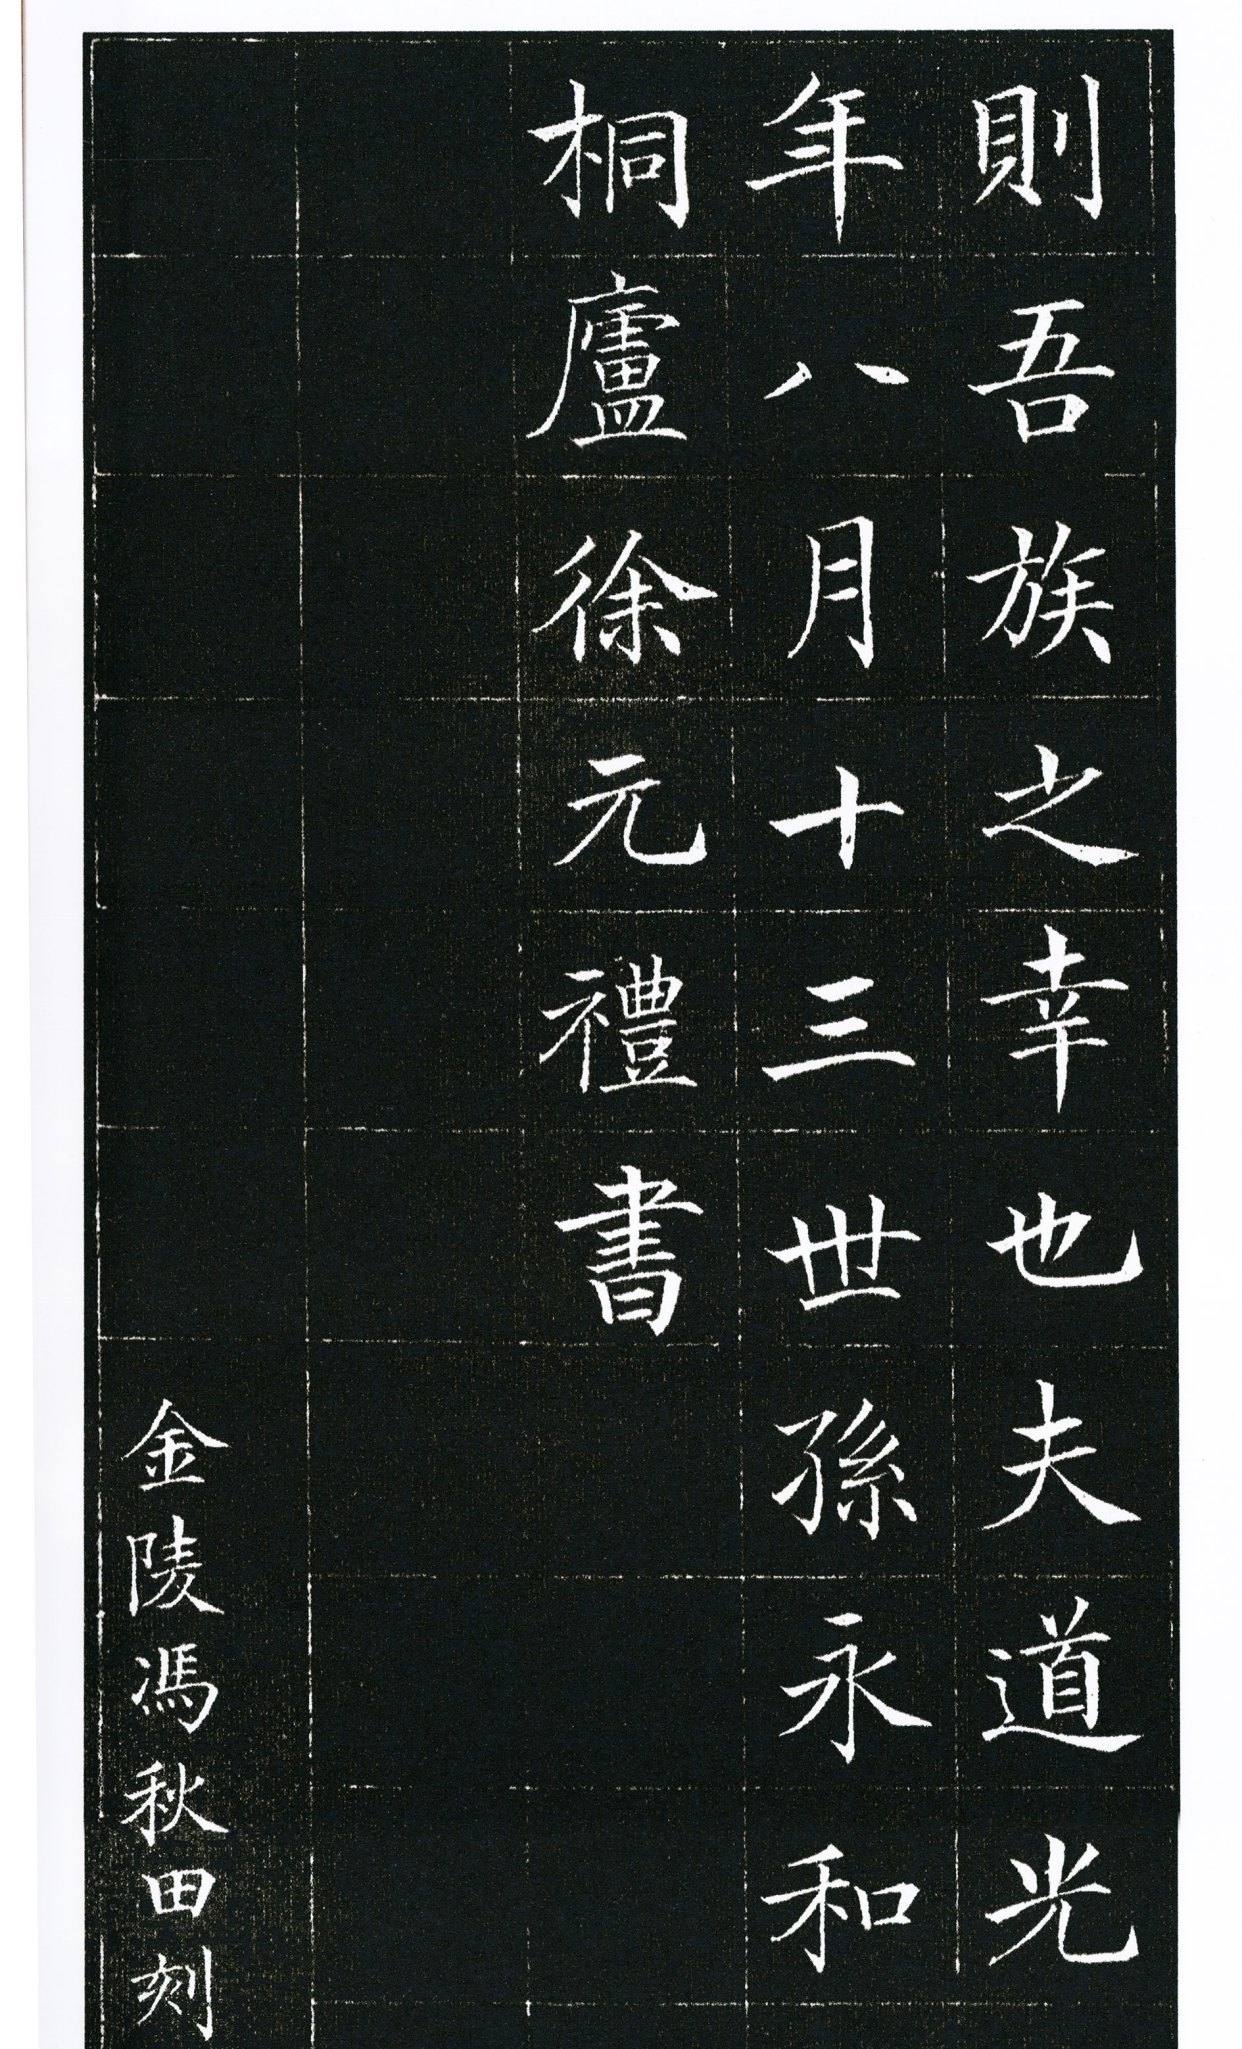 則吾族之幸也夫道光
年八月十三世孫永和
桐廬徐元禮書
金陵馮秋田刻